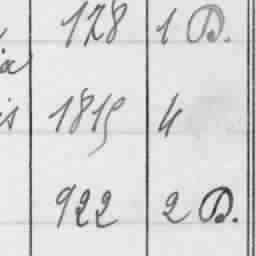 128 1 D.
ia
is 1815 4
922 2 D.